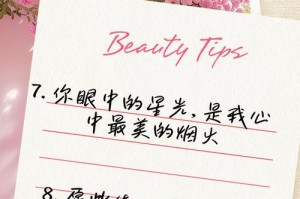 Beauty Tips
7. 你眼中的星光,是我心
中最美的烟火
8.